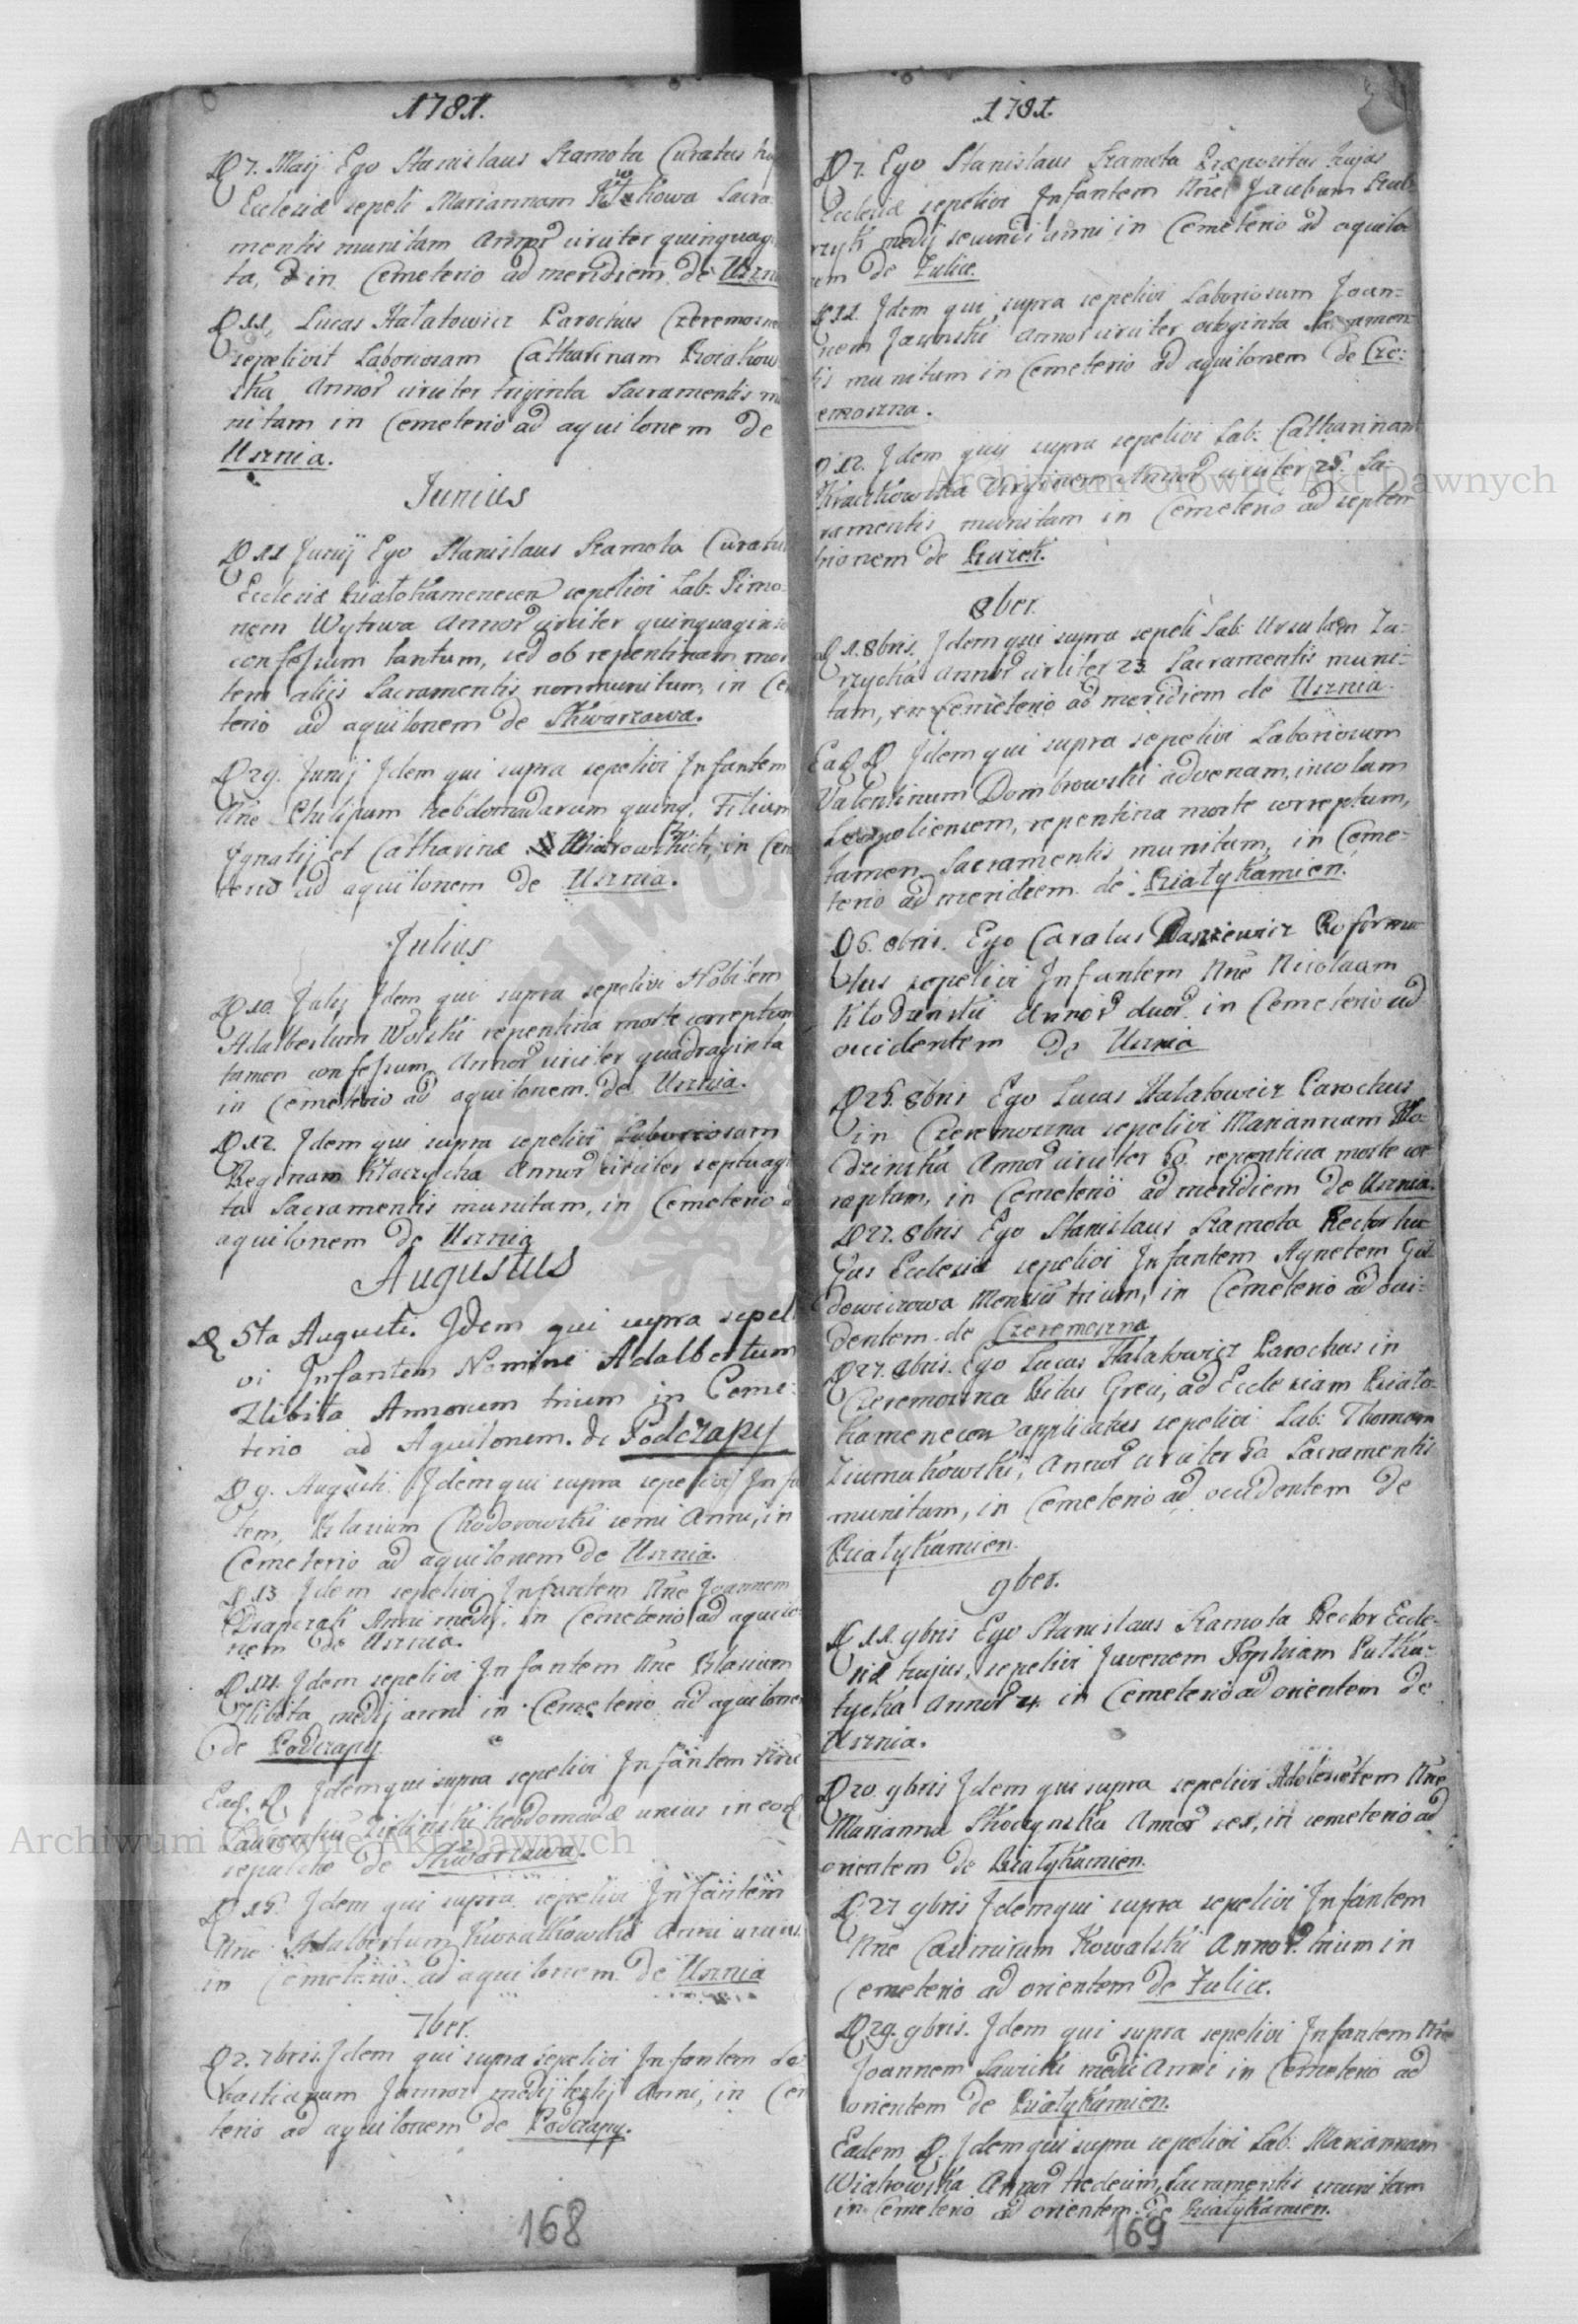 1781.
D 7. Maij Ego Stanislaus Szamota Curatus
Ecclesiæ sepeli Mariannam Sacra
mentis munitam Annor̃ circiter quinquagi
ta, in Cemeterio ad meridiem de Uszni
D 11, Lucas Halatowicz Parochus Czeremoszn
sepelivit Laboriosam Catharinam
ska Annor̃ circiter triginta Sacramentis mu
nitam in Cemeterio ad aquilonem de
Usznia.
Junius
D 11 Junij Ego Stanislaus Szamota Curatu
Ecclesiæ Białokamenecen sepelivi Lab: Simo
nem Wytrwa Annor̃ circiter quinquaginta
confessum tantum, sed ob repentinam mor
tem alijs Sacramentis nonmunitum, in Ce
terio ad aquilonem de Skwarzawa.
D 29. Junij Idem qui supra sepelivi Infantem
Nñe Philipum hebdomadarum quinq, Filium
Ignatij et Catharinæ in Cem
terio ad aquilonem de Usznia.
Julius
D 10. Julij Idem qui supra sepelivi Nobilem
Adalbertum Wolski repentina morte correptum
tamen confessum Annor̃ circiter quadraginta
in Cemeterio ad aquilonem de Usznia.
D 12. Idem qui supra sepelivi Laboriosam
Reginam Kłoczycha Annor̃ circiter septuagi
ta Sacramentis munitam, in Cemeterio a
aquilonem de Usznia
Augustus
D 5ta Augusti. Idem qui supra sepel
vi Infantem Nomine Adalbertum
Zlibita Annorum trium in Ceme:
terio ad Aquilonem. de Podczapy
D 9. Augusti Idem qui supra sepelivi Infa
tem, Blasium Chodorowski semi Anni, in
Cemeterio ad aquilonem de Usznia.
D 13 Idem sepelivi Infantem Nñe Joannem
Drapczak Anni medij. in Cemeterio ad aquilo
nem de Usznia.
D 14. Idem sepelivi Infantem Nñe Blasium
Zlibita medij anni in Cemeterio ad aquilone
de Podczapy.
Ead. D, Idem qui supra sepelivi Infantem Nñe
Laurentiũ Zielinski hebdomadæ unius in eod
sepulchr de Skwarzawa.
D 15. Idem qui supra sepelivi Infantem
Nñe Adalbertum Kwiatkowski Anni unius
in Cemeterio ad aquilonem de Usznia
7ber.
D 2. 7bris. Idem qui supra sepelivi Infantem Se
bastianum medij tertij Anni, in Cem
terio ad aquilonem de Podczapy.
168
1781.
D 7. Ego Stanislaus Szamota Præpositus hujus
Ecclesiæ sepelivi Infantem Nñe Jacobum
medij secundi anni in Cemeterio ad aquilo
nem de Żulice.
D 11. Idem qui supra sepelivi Laboriosum Joan=
nem Jaworski Annor̃ circiter octoginta Sacramen
tis munitum in Cemeterio ad aquilonem de Cze=
remoszna.
D 12. Idem qui supra sepelivi Lab: Catharinam
Kraczkowska Virginem Annor̃ circiter 25. Sa=
cramentis munitam in Cemeterio ad septem
trionem de
8ber.
D 1. 8bris. Idem qui supra sepeli Lab: Ursulam Za=
rzycka Annor̃ circiter 23 Sacramentis muni=
tam, in Cemeterio ad meridiem de Usznia.
Ead D Idem qui supra sepelivi Laboriosum
Valentinum Dombrowski advenam, incolam
Leopoliensem, repentina morte correptum,
tamen Sacramentis munitum, in Ceme=
terio ad meridiem de Białykamien.
D 6. 8bris. Ego Carolus Daszewicz Reforma
tus sepelivi Infantem Nñe Nicolaum
Kłodzinski Annor̃ duor̃ in Cemeterio ad
occidentem de Usznia
D 25. 8bris Ego Lucas Halatowicz Parochus
in Czeremoszna sepelivi Mariannam Kło=
dzinska Annor̃ circiter 50 repentina morte cor
reptam, in Cemeterio ad meridiem de Usznia.
D 27. 8bris Ego Stanislaus Szamota Rector hu=
jus Ecclesiæ sepelivi Infantem Agnetem
dowiczowa Mensiũ trium, in Cemeterio ad occi=
dentem de Czeremoszna
D 27. 8bris. Ego Lucas Halatowicz Parochus in
Czeremoszna Ritus Greci, ad Ecclesiam Biało=
kamenecen applicatus sepelivi Lab: Thomam
Annor̃ circiter Sacramentis
munitum, in Cemeterio ad occidentem de
Białykamien.
9ber.
D 11. 9bris Ego Stanislaus Szamota Rector Eccle=
siæ hujus, sepelivi Juvenem Sophiam
Annor̃ in Cemeterio ad orientem de
Usznia.
D 20. 9bris Idem qui supra sepelivi Adolescẽtem Nñe
Marianna Skoczynska Annor̃ sex, in cemeterio ad
orientem de Białykamien.
D 27 9bris Idem qui supra sepelivi Infantem
Nñe Casimirum Kowalski Annor̃ trium in
Cemeterio ad orientem de Żulice.
D 29. 9bris. Idem qui supra sepelivi Infantem Nñe
Joannem Sawicki medii Anni in Cemeterio ad
orientem de Białykamien.
Eadem D. Idem qui supra sepelivi Lab: Mariannam
Wiatrowska Annor̃ tredecim, Sacramentis munitam
in Cemeterio ad orientem de Białykamien.
169
Archiwum Główne Akt Dawnych
Archiwum Główne Akt Dawnych